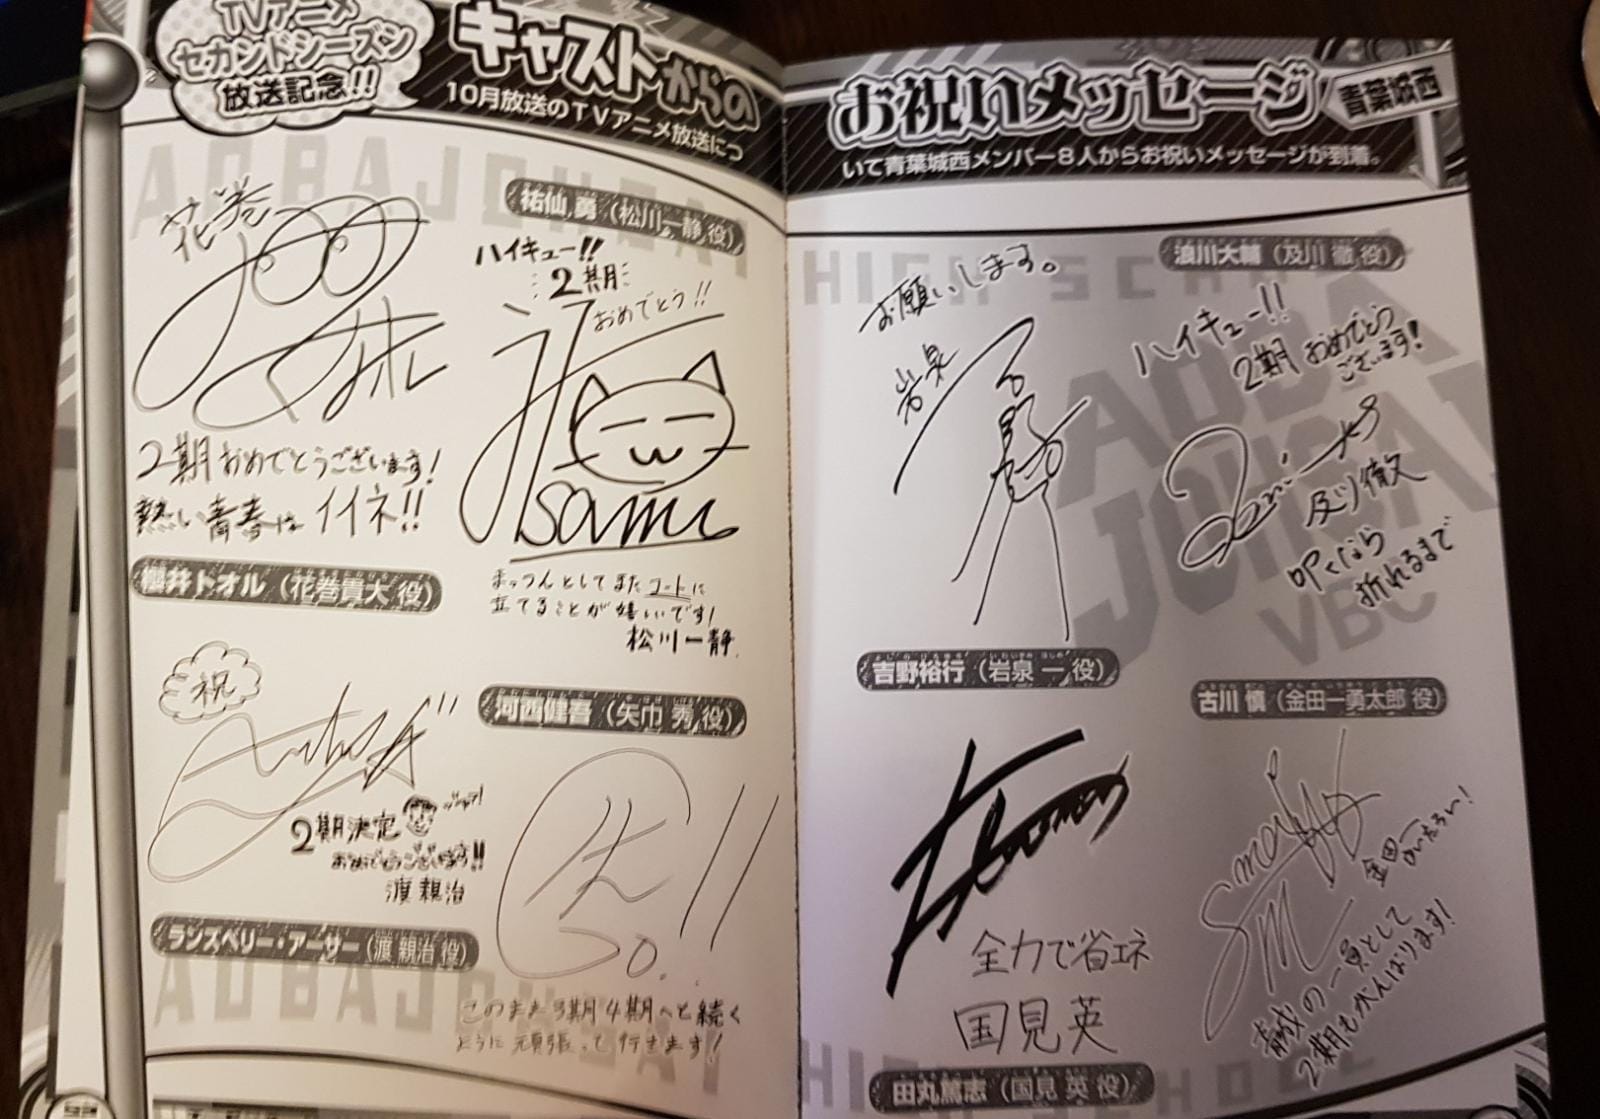 TVアニメ
セカンドシーズン
放送記念!!
キャストからの
10月放送のTVアニメ放送につ
お祝いメッセージ
青葉城西
いて青葉城西メンバー8人からお祝いメッセージが到着。
花巻
トオル
2期おめでとうございます!
熱い青春はイイネ!!
櫻井トオル（花巻貴大 役）
祐仙 勇（松川一静 役）
ハイキュー!!
2期
おめでとう!!
Isamu
まっつんとしてまたコートに
立てることが嬉しいです!
松川一静
祝
2期決定
おめでとうございます!!
渡 親治
ランズベリー・アーサー（渡 親治 役）
河西健吾（矢巾 秀 役）
このまま3期4期へと続く
ように頑張って行きます!
お願いします。
岩泉
吉野裕行（岩泉 一 役）
浪川大輔（及川 徹 役）
ハイキュー!!
2期 おめでとう
ございます!
及川徹
叩くなら
折れるまで
全力で省エネ
国見英
田丸篤志（国見 英 役）
古川 慎（金田一勇太郎 役）
金田一
青城の一員として
2期もがんばります!
AOBA JOHSAI
HIGH SCHOOL
AOBA
JOHSAI
VBC